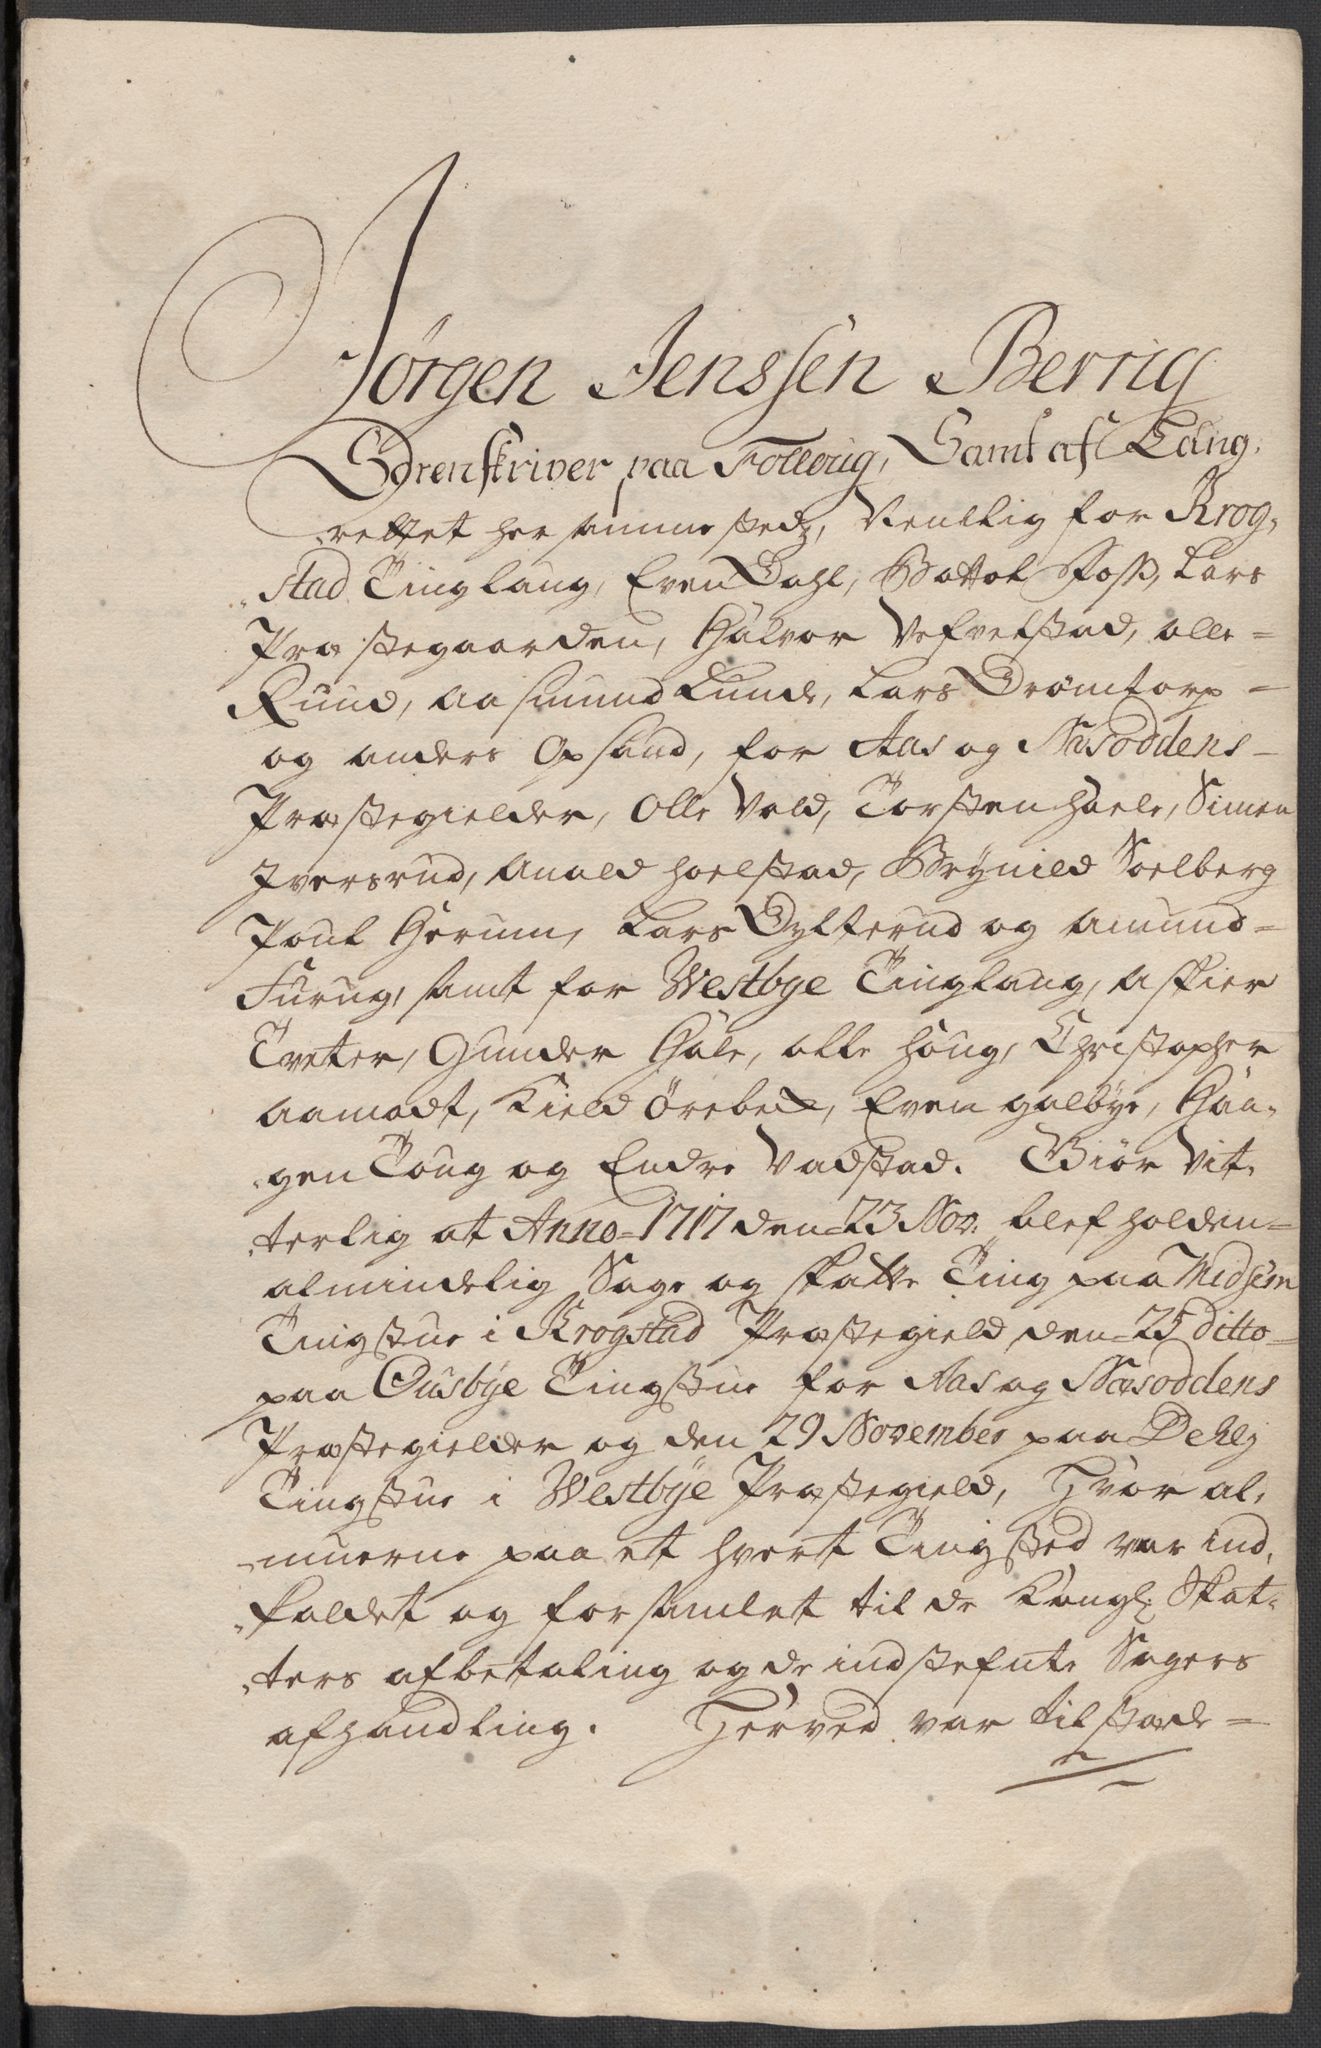 Jørgen Jenssen Berrig
Sorenskriver paa Folloug, Samt af Laug,
rettet her samme stedz, Nentlig for Krog,
stad Tinglaug, Even Dahl, Bottol Foss, Lars
Præstegaarden, Halvor Vefvelstad, Olle =
Ruud, Aasmund Lunde, Lars Drømtorp =
og Anders Opsand, for Aas og Næsoddens =
Præstegielder, Olle Vold, Torsten Haele, Simen
Iversrud, Anald Hoelstad, Brynild Soelberg
Poul Gerum, Lars Dylterud og Amund =
Furug, samt for Westbye Tinglaug, Askier
Tveter, Gunder Hole, Olle Houg, Christopher
Aamodt, Kield Örebek, Even Galbye, Haa,
gen Toug og Endre Vadstad. Giør Vit,
terlig at Anno = 1717 den = 23 Nov. blef holden =
almindelig Sage og skatte Ting paa Medsem
Tingstue i Krogstad Præstegield den = 25 ditto =
paa Ousbye Tingstue for Aas og Næsoddens
Præstegielder og den 29 November paa Dehlj
Tingstue i Westbye Præstegield, Hvor al,
muerne paa et hvert Tingsted var ind,
kaldet og forsamlet til de Kongl: Skat,
ters afbetaling og de indstefnte Sagers
afhandling. Herved var tilstæde =